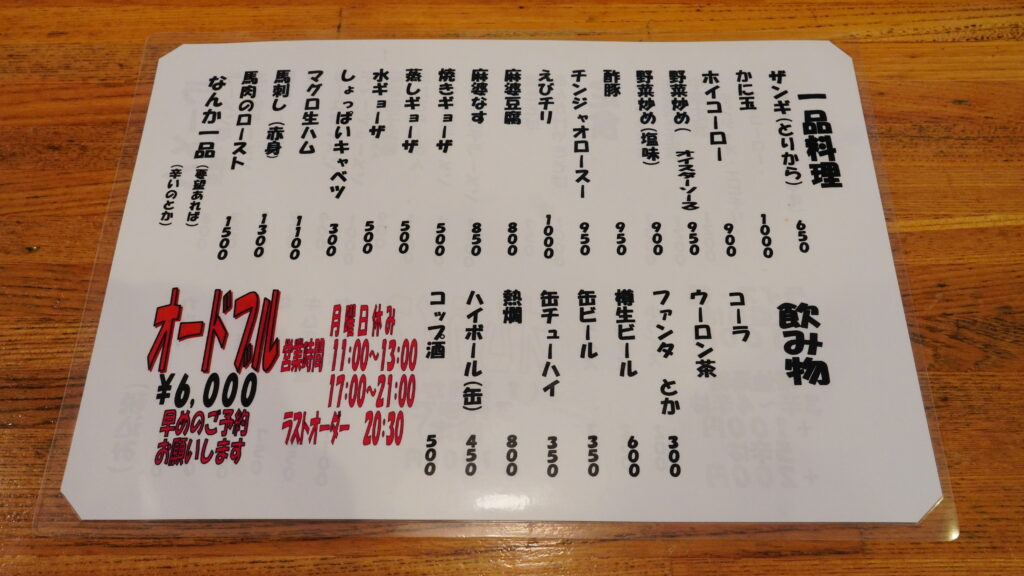 一品料理
ザンギ(とりから) 650
かに玉 1000
ホイコーロー 900
野菜炒め(オイスターソース 950
野菜炒め(塩味) 900
酢豚 950
チンジャオロースー 950
えびチリ 1000
麻婆豆腐 800
麻婆なす 850
焼きギョーザ 500
蒸しギョーザ 500
水ギョーザ 500
しょっぱいキャベツ 300
マグロ生ハム 1100
馬刺し(赤身) 1300
馬肉のロースト 1500
なんか一品(要望あれば)
(辛いのとか)
飲み物
コーラ
ウーロン茶
ファンタ とか 300
樽生ビール 600
缶ビール 350
缶チューハイ 350
熱燗 800
ハイボール(缶) 450
コップ酒 500
月曜日休み
営業時間 11:00~13:00
17:00~21:00
ラストオーダー 20:30
オードブル
¥6,000
早めのご予約
お願いします